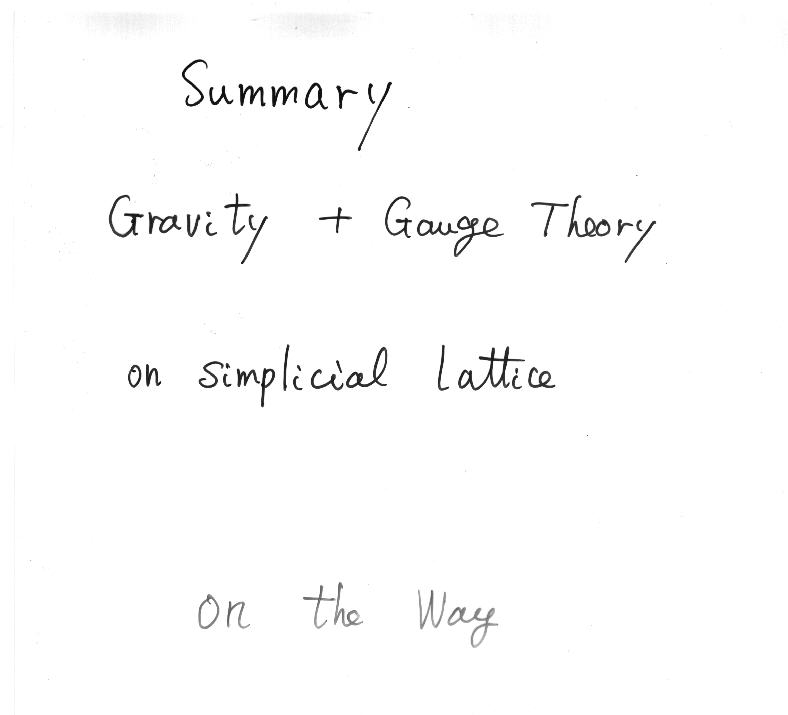 Summary
Gravity + Gauge Theory
on simplicial lattice
on the Way